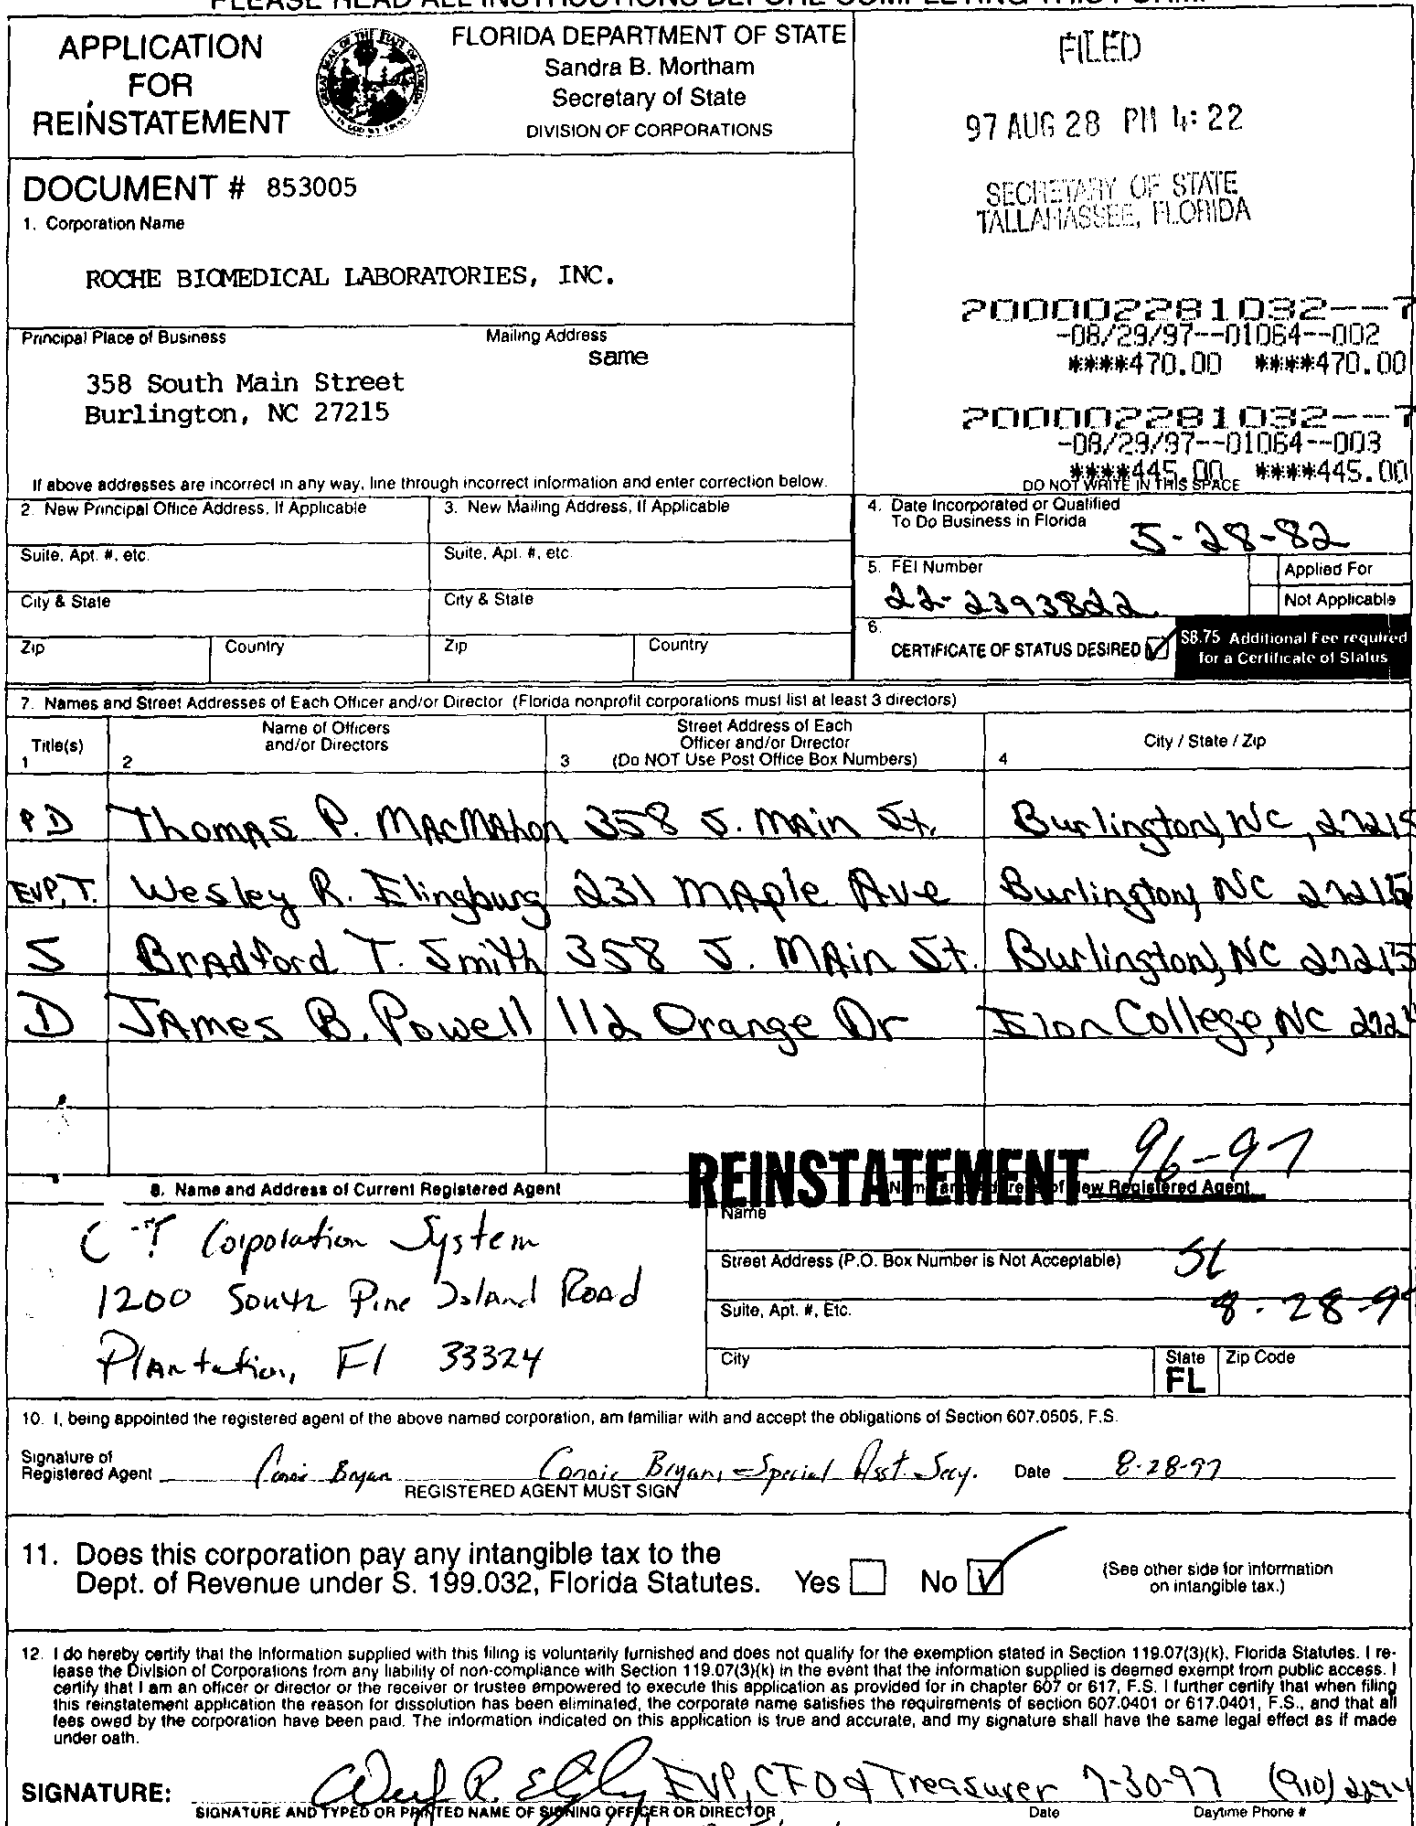 PLEASE READ ALL INSTRUCTIONS BEFORE COMPLETING THIS FORM.
APPLICATION
FOR
REINSTATEMENT
FLORIDA DEPARTMENT OF STATE
Sandra B. Mortham
Secretary of State
DIVISION OF CORPORATIONS
FILED
97 AUG 28 PM 4:22
SECRETARY OF STATE
TALLAHASSEE, FLORIDA
DOCUMENT # 853005
1. Corporation Name
ROCHE BIOMEDICAL LABORATORIES, INC.
Principal Place of Business
Mailing Address
same
358 South Main Street
Burlington, NC 27215
200002281032--7
-08/29/97--01064--002
****470.00 ****470.00
200002281032--7
-08/29/97--01064--003
****445.00 ****445.00
DO NOT WRITE IN THIS SPACE
If above addresses are incorrect in any way, line through incorrect information and enter correction below.
2. New Principal Office Address, If Applicable
3. New Mailing Address, If Applicable
4. Date Incorporated or Qualified
To Do Business in Florida
5-28-82
Suite, Apt. #, etc.
Suite, Apt. #, etc.
5. FEI Number
22-2393822
Applied For
Not Applicable
City & State
City & State
6.
CERTIFICATE OF STATUS DESIRED
$8.75 Additional Fee required
for a Certificate of Status
Zip
Country
Zip
Country
7. Names and Street Addresses of Each Officer and/or Director (Florida nonprofit corporations must list at least 3 directors)
Title(s)
1
Name of Officers
and/or Directors
2
Street Address of Each
Officer and/or Director
3 (Do NOT Use Post Office Box Numbers)
City / State / Zip
4
PD Thomas P. MacMahon 358 S. Main St. Burlington, NC, 27215
EVP, T. Wesley R. Elingburg 231 Maple Ave Burlington, NC 27215
S Bradford T. Smith 358 S. Main St. Burlington, NC 27215
D James B. Powell 112 Orange Dr Elon College, NC
REINSTATEMENT 96-97
8. Name and Address of Current Registered Agent
New Registered Agent
C T Corporation System
1200 South Pine Island Road
Plantation, Fl 33324
Name
Street Address (P.O. Box Number is Not Acceptable)
Suite, Apt. #, Etc.
8-28-9
City
State
FL
Zip Code
10. I, being appointed the registered agent of the above named corporation, am familiar with and accept the obligations of Section 607.0505, F.S.
Signature of
Registered Agent Connie Bryan Connie Bryan, - Special Asst. Secy. Date 8-28-97
REGISTERED AGENT MUST SIGN
11. Does this corporation pay any intangible tax to the
Dept. of Revenue under S. 199.032, Florida Statutes. Yes No
(See other side for information
on intangible tax.)
12. I do hereby certify that the information supplied with this filing is voluntarily furnished and does not qualify for the exemption stated in Section 119.07(3)(k), Florida Statutes. I re-
lease the Division of Corporations from any liability of non-compliance with Section 119.07(3)(k) in the event that the information supplied is deemed exempt from public access. I
certify that I am an officer or director or the receiver or trustee empowered to execute this application as provided for in chapter 607 or 617, F.S. I further certify that when filing
this reinstatement application the reason for dissolution has been eliminated, the corporate name satisfies the requirements of section 607.0401 or 617.0401, F.S., and that all
fees owed by the corporation have been paid. The information indicated on this application is true and accurate, and my signature shall have the same legal effect as if made
under oath.
SIGNATURE: EVP, CFO & Treasurer 7-30-97 (910)
SIGNATURE AND TYPED OR PRINTED NAME OF SIGNING OFFICER OR DIRECTOR
Date
Daytime Phone #